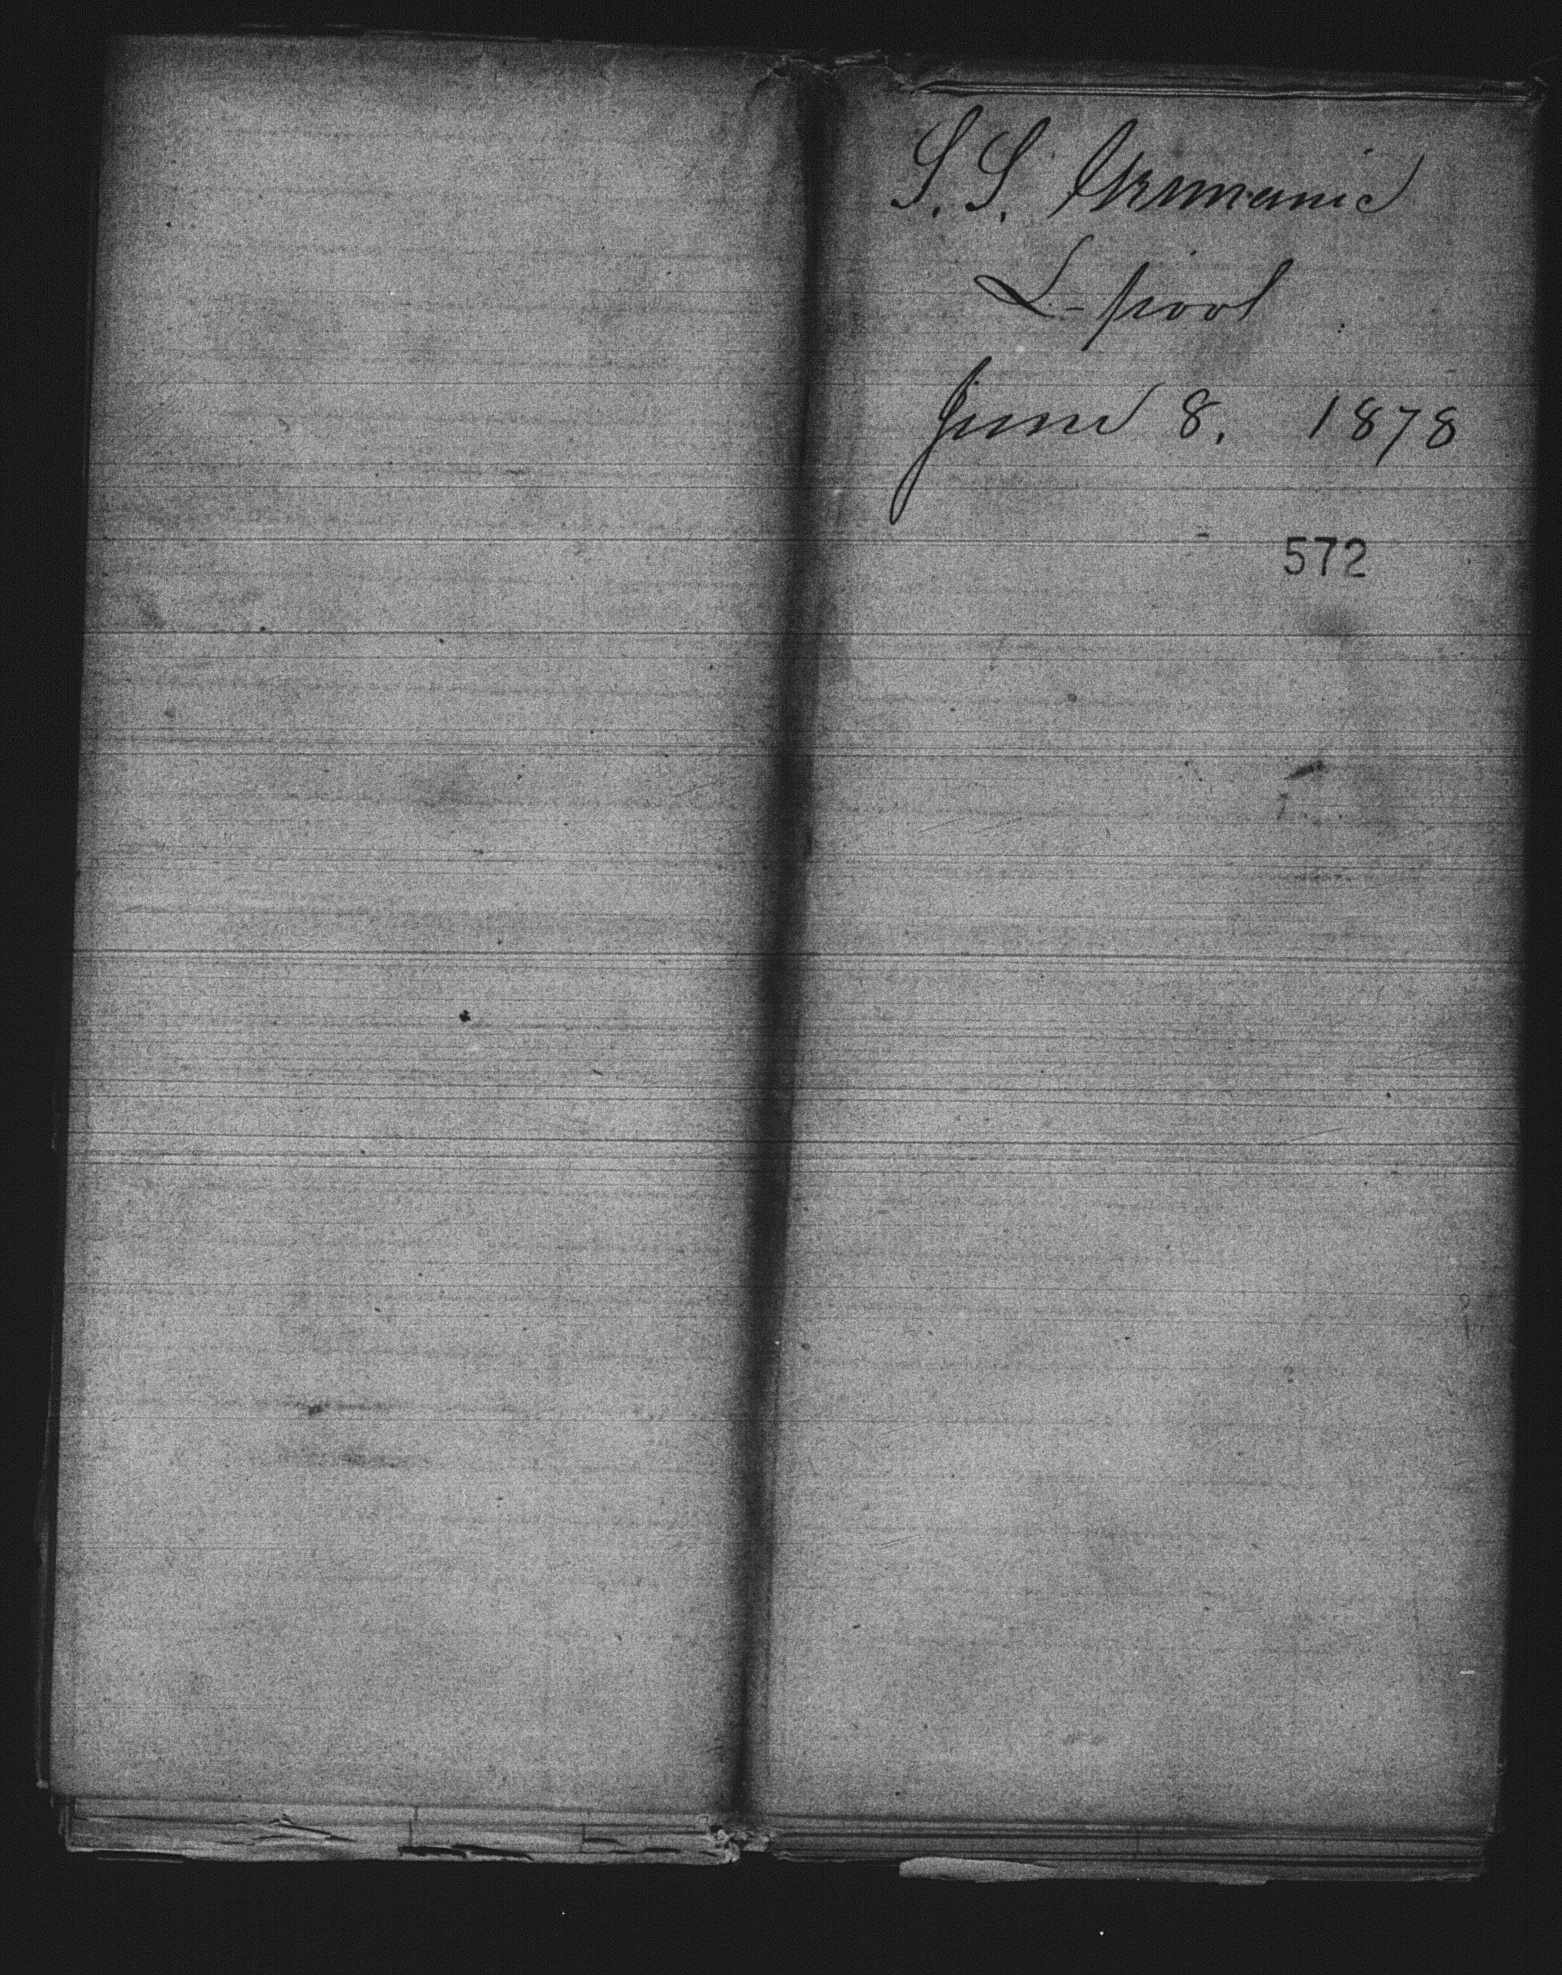 S. S. Germanic
L-pool
June 8. 1878
572